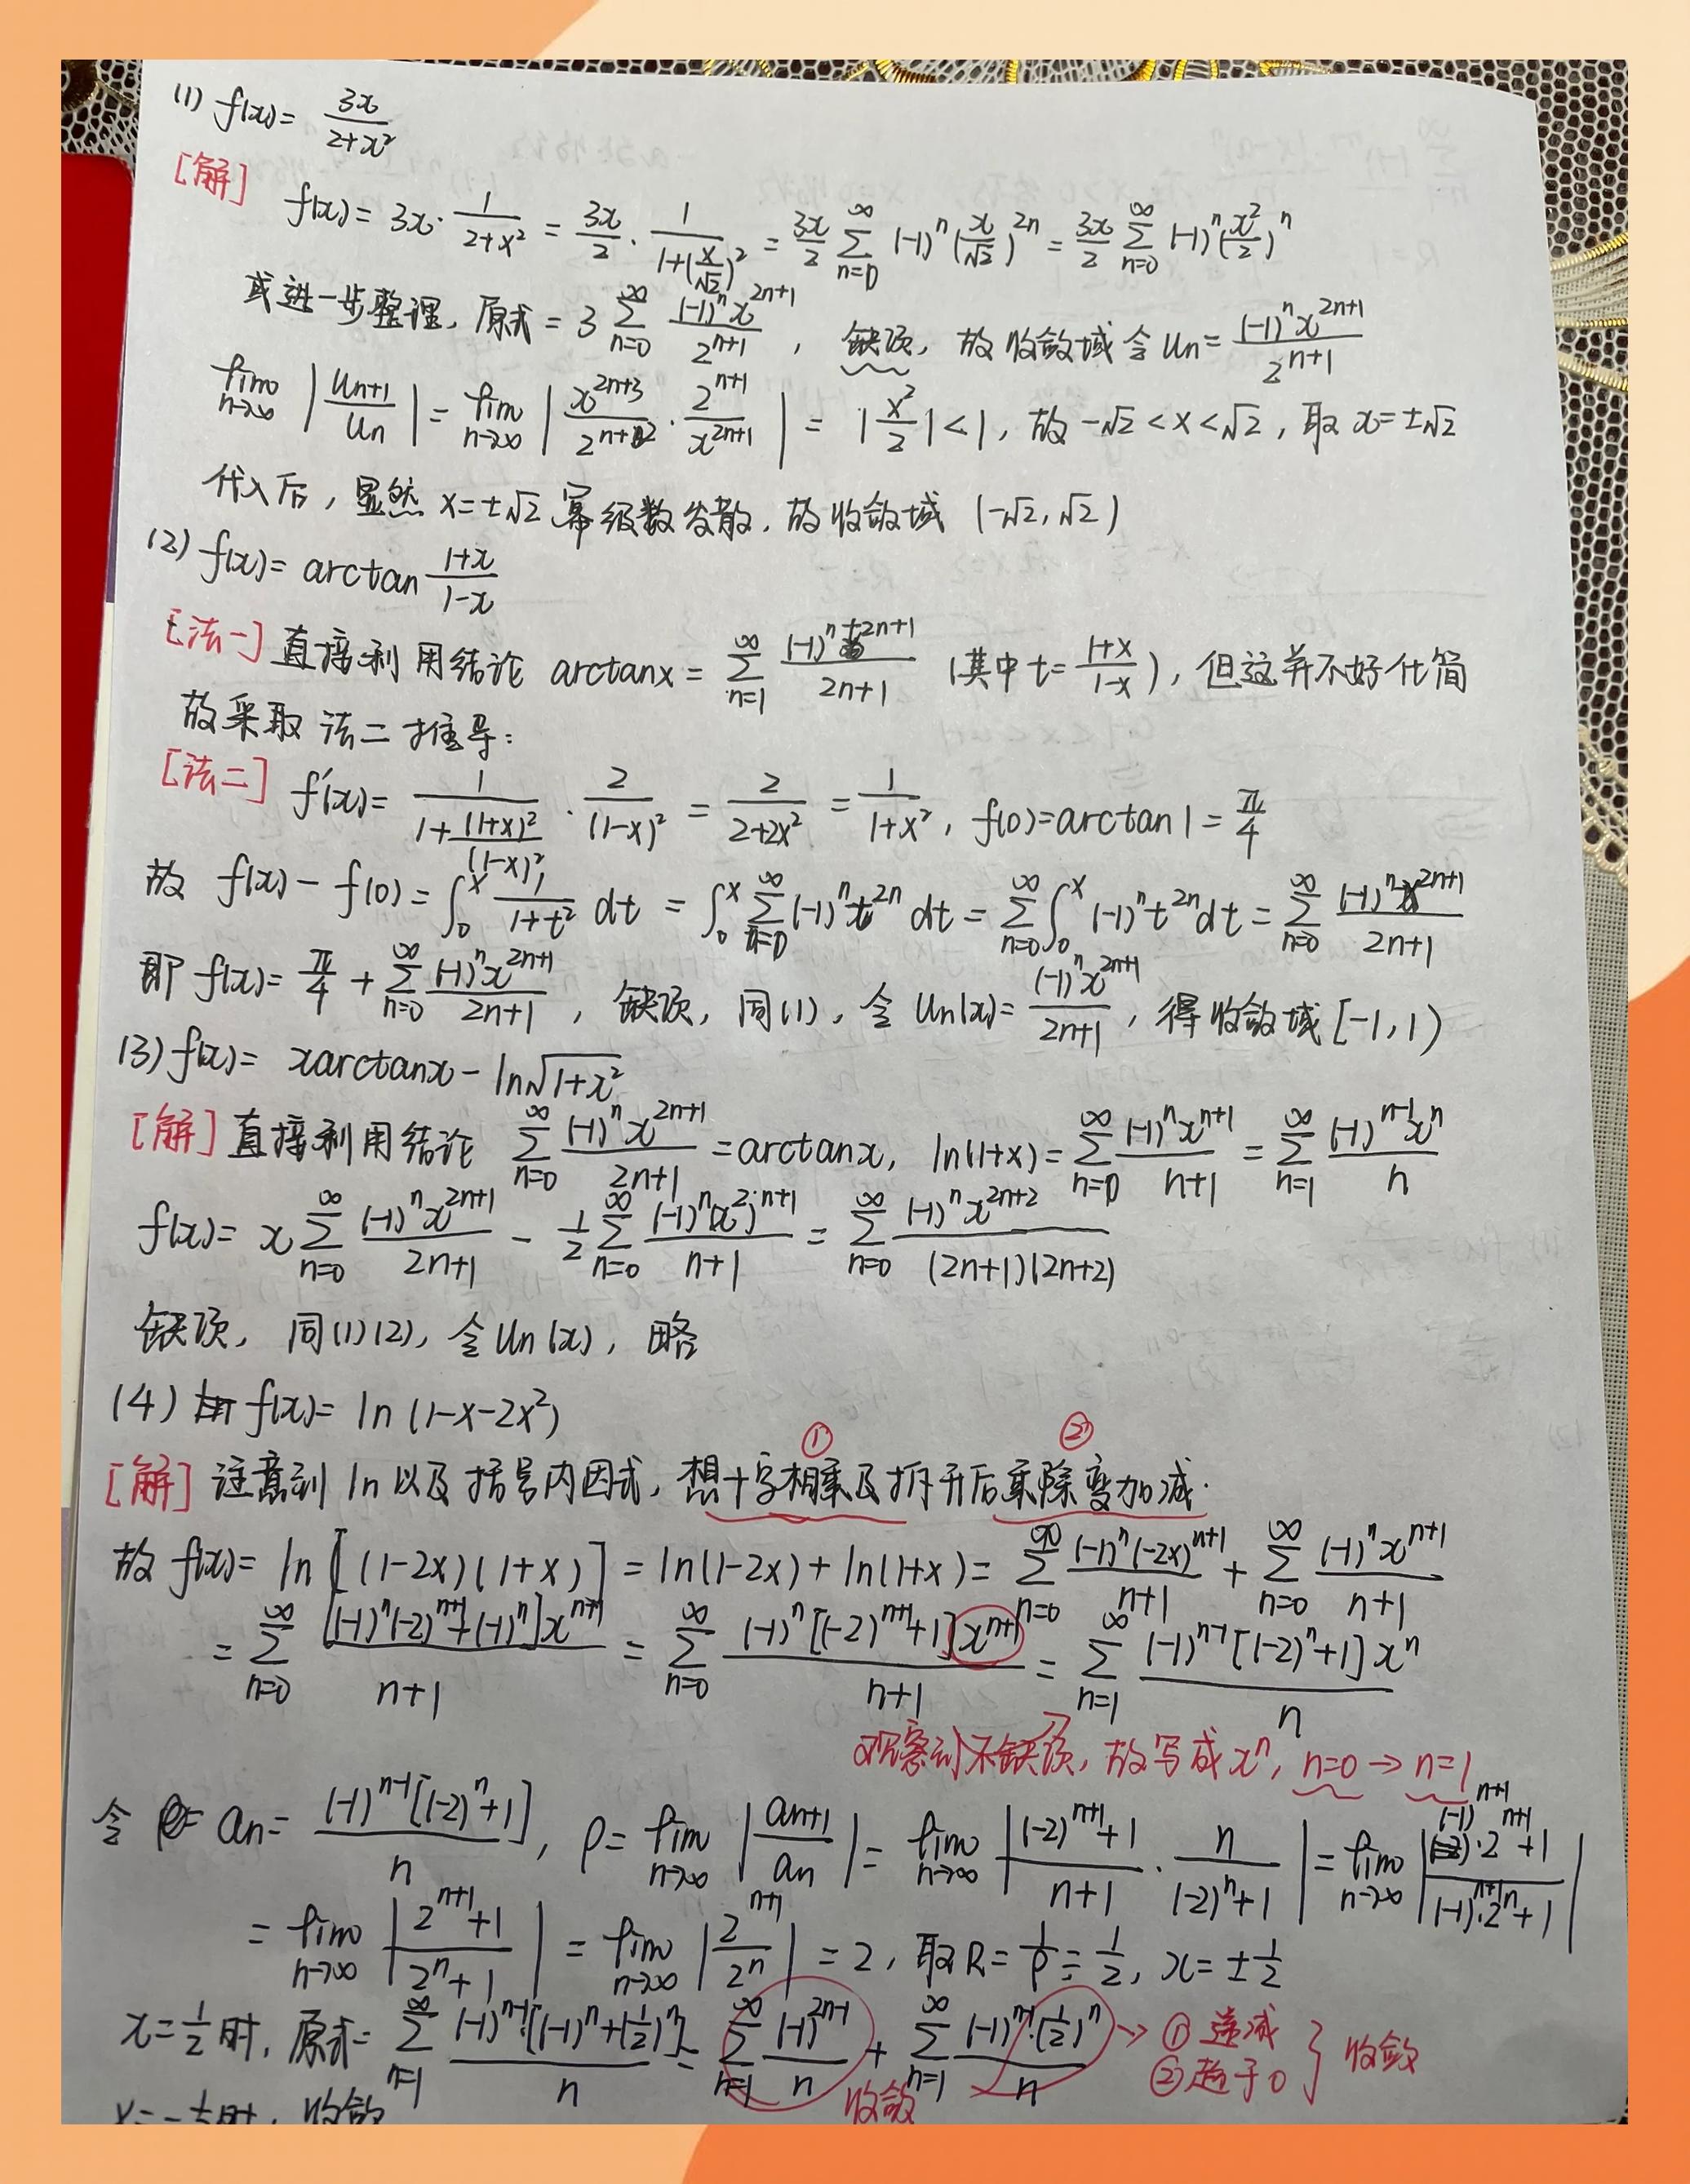 (1) f(x) = 3x/(2+x²)
[解]
f(x) = 3x·1/(2+x²) = 3x/2 · 1/(1+(x/√2)²) = 3x/2 ∑_{n=0}^{∞} (-1)^n (x/√2)^{2n} = 3x/2 ∑_{n=0}^{∞} (-1)^n (x²/2)^n
或进一步整理, 原式 = 3 ∑_{n=0}^{∞} (-1)^n x^{2n+1}/2^{n+1}, 缺项, 故收敛域令 Un = (-1)^n x^{2n+1}/2^{n+1}
lim_{n→∞} |U_{n+1}/Un| = lim_{n→∞} |x^{2n+3}/2^{n+2} · 2^{n+1}/x^{2n+1}| = |x²/2| < 1, 故 -√2 < x < √2, 取 x = ±√2
代入后, 显然 x = ±√2 幂级数发散, 故收敛域 (-√2, √2)
(2) f(x) = arctan (1+x)/(1-x)
[法一] 直接利用结论 arctanx = ∑_{n=1}^{∞} (-1)^n t^{2n+1}/(2n+1) (其中 t = (1+x)/(1-x)), 但这并不好化简
故采取法二推导:
[法二] f'(x) = 1/(1+(1+x)²/(1-x)²) · 2/(1-x)² = 2/(2+2x²) = 1/(1+x²), f(0) = arctan1 = π/4
故 f(x) - f(0) = ∫_0^x 1/(1+t²) dt = ∫_0^x ∑_{n=0}^{∞} (-1)^n t^{2n} dt = ∑_{n=0}^{∞} ∫_0^x (-1)^n t^{2n} dt = ∑_{n=0}^{∞} (-1)^n x^{2n+1}/(2n+1)
即 f(x) = π/4 + ∑_{n=0}^{∞} (-1)^n x^{2n+1}/(2n+1), 缺项, 同(1), 令 Un(x) = (-1)^n x^{2n+1}/(2n+1), 得收敛域 [-1, 1)
(3) f(x) = xarctanx - ln√(1+x²)
[解] 直接利用结论 ∑_{n=0}^{∞} (-1)^n x^{2n+1}/(2n+1) = arctanx, ln(1+x) = ∑_{n=0}^{∞} (-1)^n x^{n+1}/(n+1) = ∑_{n=1}^{∞} (-1)^{n-1} x^n/n
f(x) = x ∑_{n=0}^{∞} (-1)^n x^{2n+1}/(2n+1) - 1/2 ∑_{n=0}^{∞} (-1)^n (x²)^{n+1}/(n+1) = ∑_{n=0}^{∞} (-1)^n x^{2n+2}/((2n+1)(2n+2))
缺项, 同(1)(2), 令 Un(x), 略
(4) f(x) = ln(1-x-2x²)
① ②
[解] 注意到 ln 以及括号内因式, 想十字相乘及拆开后乘除变加减.
故 f(x) = ln[(1-2x)(1+x)] = ln(1-2x) + ln(1+x) = ∑_{n=0}^{∞} (-1)^n (-2x)^{n+1}/(n+1) + ∑_{n=0}^{∞} (-1)^n x^{n+1}/(n+1)
= ∑_{n=0}^{∞} [(-1)^n (-2)^{n+1} + (-1)^n] x^{n+1}/(n+1) = ∑_{n=0}^{∞} (-1)^n [(-2)^{n+1}+1] x^{n+1}/(n+1) = ∑_{n=1}^{∞} (-1)^{n-1} [(-2)^n+1] x^n/n
观察到不缺项, 故写成 x^n, n=0 → n=1
令 an = (-1)^{n-1} [(-2)^n+1]/n, ρ = lim_{n→∞} |a_{n+1}/an| = lim_{n→∞} |((-2)^{n+1}+1)/(n+1) · n/((-2)^n+1)| = lim_{n→∞} |((-1)^{n+1}·2^{n+1}+1)/((-1)^{n+1}·2^n+1)|
= lim_{n→∞} |(2^{n+1}+1)/(2^n+1)| = lim_{n→∞} |2^{n+1}/2^n| = 2, 取 R = 1/ρ = 1/2, x = ±1/2
x = 1/2 时, 原式 = ∑_{n=1}^{∞} (-1)^{n-1}·[(-1)^n + (1/2)^n]/n = ∑_{n=1}^{∞} (-1)^{2n-1}/n + ∑_{n=1}^{∞} (-1)^{n-1}·(1/2)^n/n → ① 递减 ② 趋于0 } 收敛
收敛
x = -1/2 时, 收敛